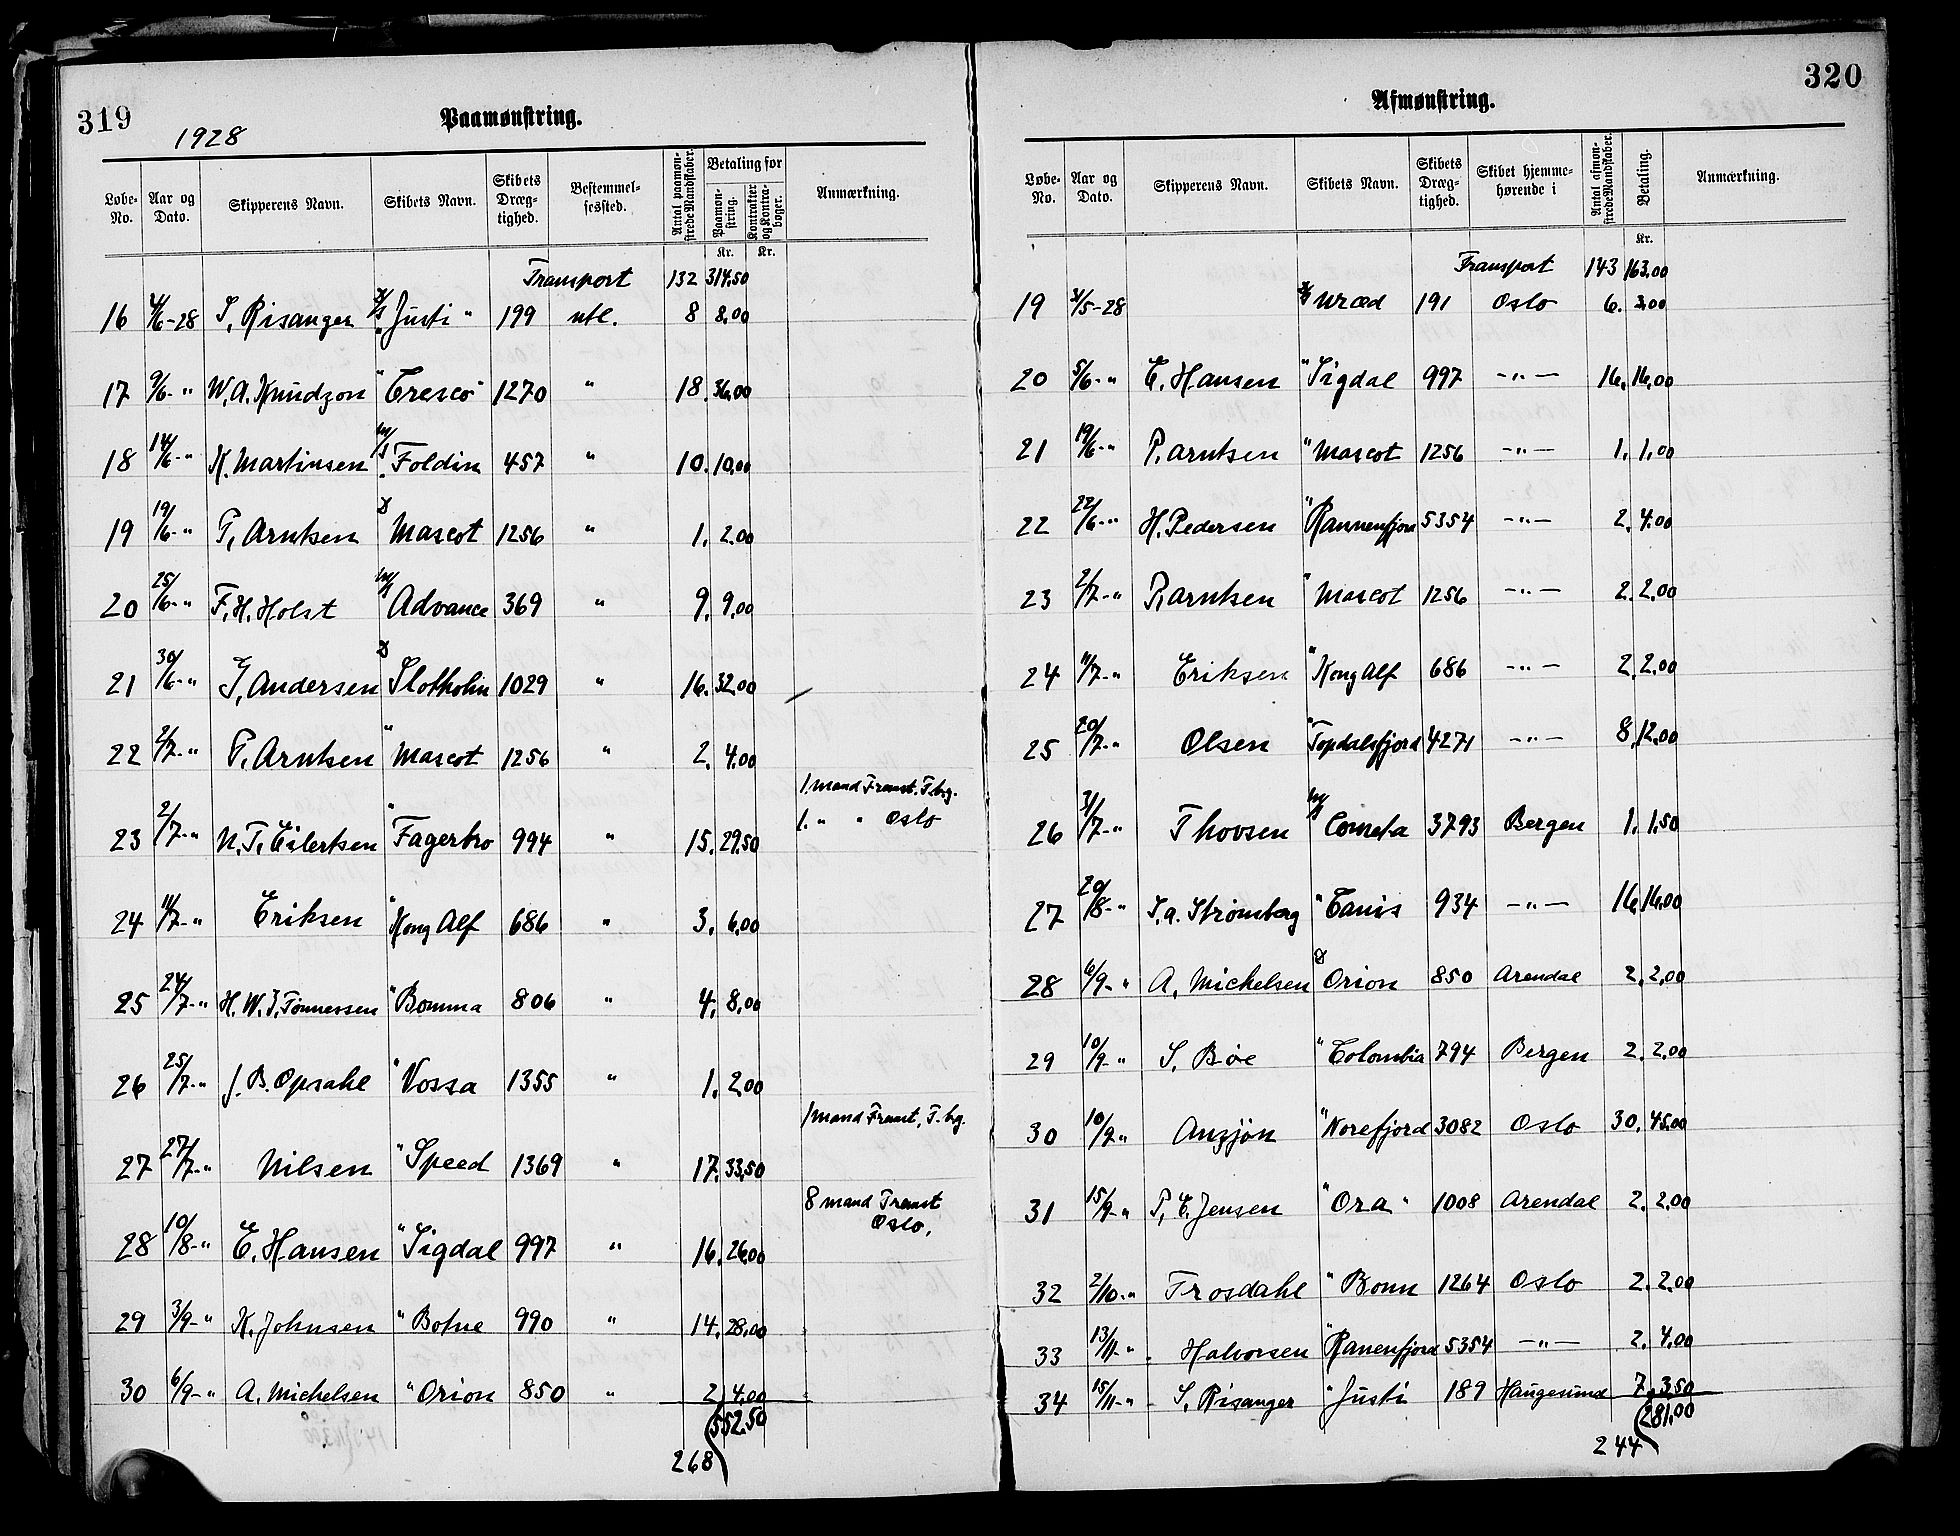 319
1928
Paamønstring.
Løbe-No. Aar og Dato. Skipperens Navn. Skibets Navn. Skibets Dræg-tighed. Bestemmel-sessted. Antal paamøn-strede Mandskaber. Betaling for Paamøn-string. Kontrakter og Kontra-bøger. Anmærkning.
Kr. Kr.
Transport 132 314,50
16 4/6-28 S, Risanger "Justi" 199 utl. 8 8,00
17 9/6- " W. A. Knudzon " Tresco 1270 " 18. 36,00
18 14/6- " K. Martinsen M/S Foldin 457 " 10. 10,00
19 19/6- " P, Arntsen Mascot 1256 " 1. 2.00
20 25/6- " F. H. Holst Advance 369 " 9. 9,00
21 30/6- " G, Andersen Slotholm 1029 " 16. 32,00
22 2/7- " P. Arntsen " Mascot 1256 " 2. 4.00
1. mand Framst. T.brg.
23 2/7- " N. T. Eilertsen " Fagerbro 994 " 15. 29,50 1. " " Oslo
24 11/7- " Eriksen " Kong Alf 686 " 3. 6,00
25 24/7- " H. W. J. Tønnessen " Bomma 806 " 4. 8,00
26 25/7- " J. B. Opsahl " Vossa 1355 " 1. 2,00
1 mand Framst, T. brg.
27 27/7- " Nilsen " Speed 1369 " 17. 33,50
8 mand Framst
Oslo,
28 10/8- " E. Hansen " Sigdal 997 " 16. 26,00
29 3/9- " K. Johnsen " Botne 990 " 14. 28,00
30 6/9- " A. Michelsen " Orion 850 " 2 4,00
552,50
268
320
Afmønstring.
Løbe-No. Aar og Dato. Skipperens Navn. Skibets Navn. Skibets Dræg-tighed. Skibet hjemme-hørende i Antal afmøn-strede Mandskaber. Betaling. Anmærkning.
Kr.
Transport 143 163,00
19 31/5-28 Uræd 191 Oslo 6. 3,00
20 5/6- " E. Hansen " Sigdal 997 -"- 16. 16,00
21 19/6- " P, Arntsen " Mascot 1256 -"- 1. 1,00
22 22/6- " H. Pedersen " Rannenfjord 5354 -"- 2. 4.00
23 2/7- " P, Arntsen " Mascot 1256 -"- 2. 2,00
24 11/7- " Eriksen " Kong Alf 686 -"- 2. 2,00
25 20/7- " Olsen " Topdalsfjord 4271 -"- 8. 12,00
26 31/7- " Thovsen Cometa 3793 Bergen 1. 1,50
27 20/8- " J. A. Strømberg " Tanis 934 -"- 16. 16,00
28 6/9- " A. Michelsen Orion 850 Arendal 2. 2,00
29 10/9- " S. Bøe " Colombia 794 Bergen 2. 2,00
30 10/9- " Anzjøn " Norefjord 3082 Oslo 30. 45,00
31 15/9- " P, E. Jensen " Ora " 1008 Arendal 2. 2,00
32 2/10- " Trosdahl " Bonn 1264 Oslo 2. 2,00
33 13/11- " Halvorsen " Ranenfjord 5354 -"- 2. 4,00
34 15/11- " S, Risanger " Justi 189 Haugesund 7. 3,50
281,00
244